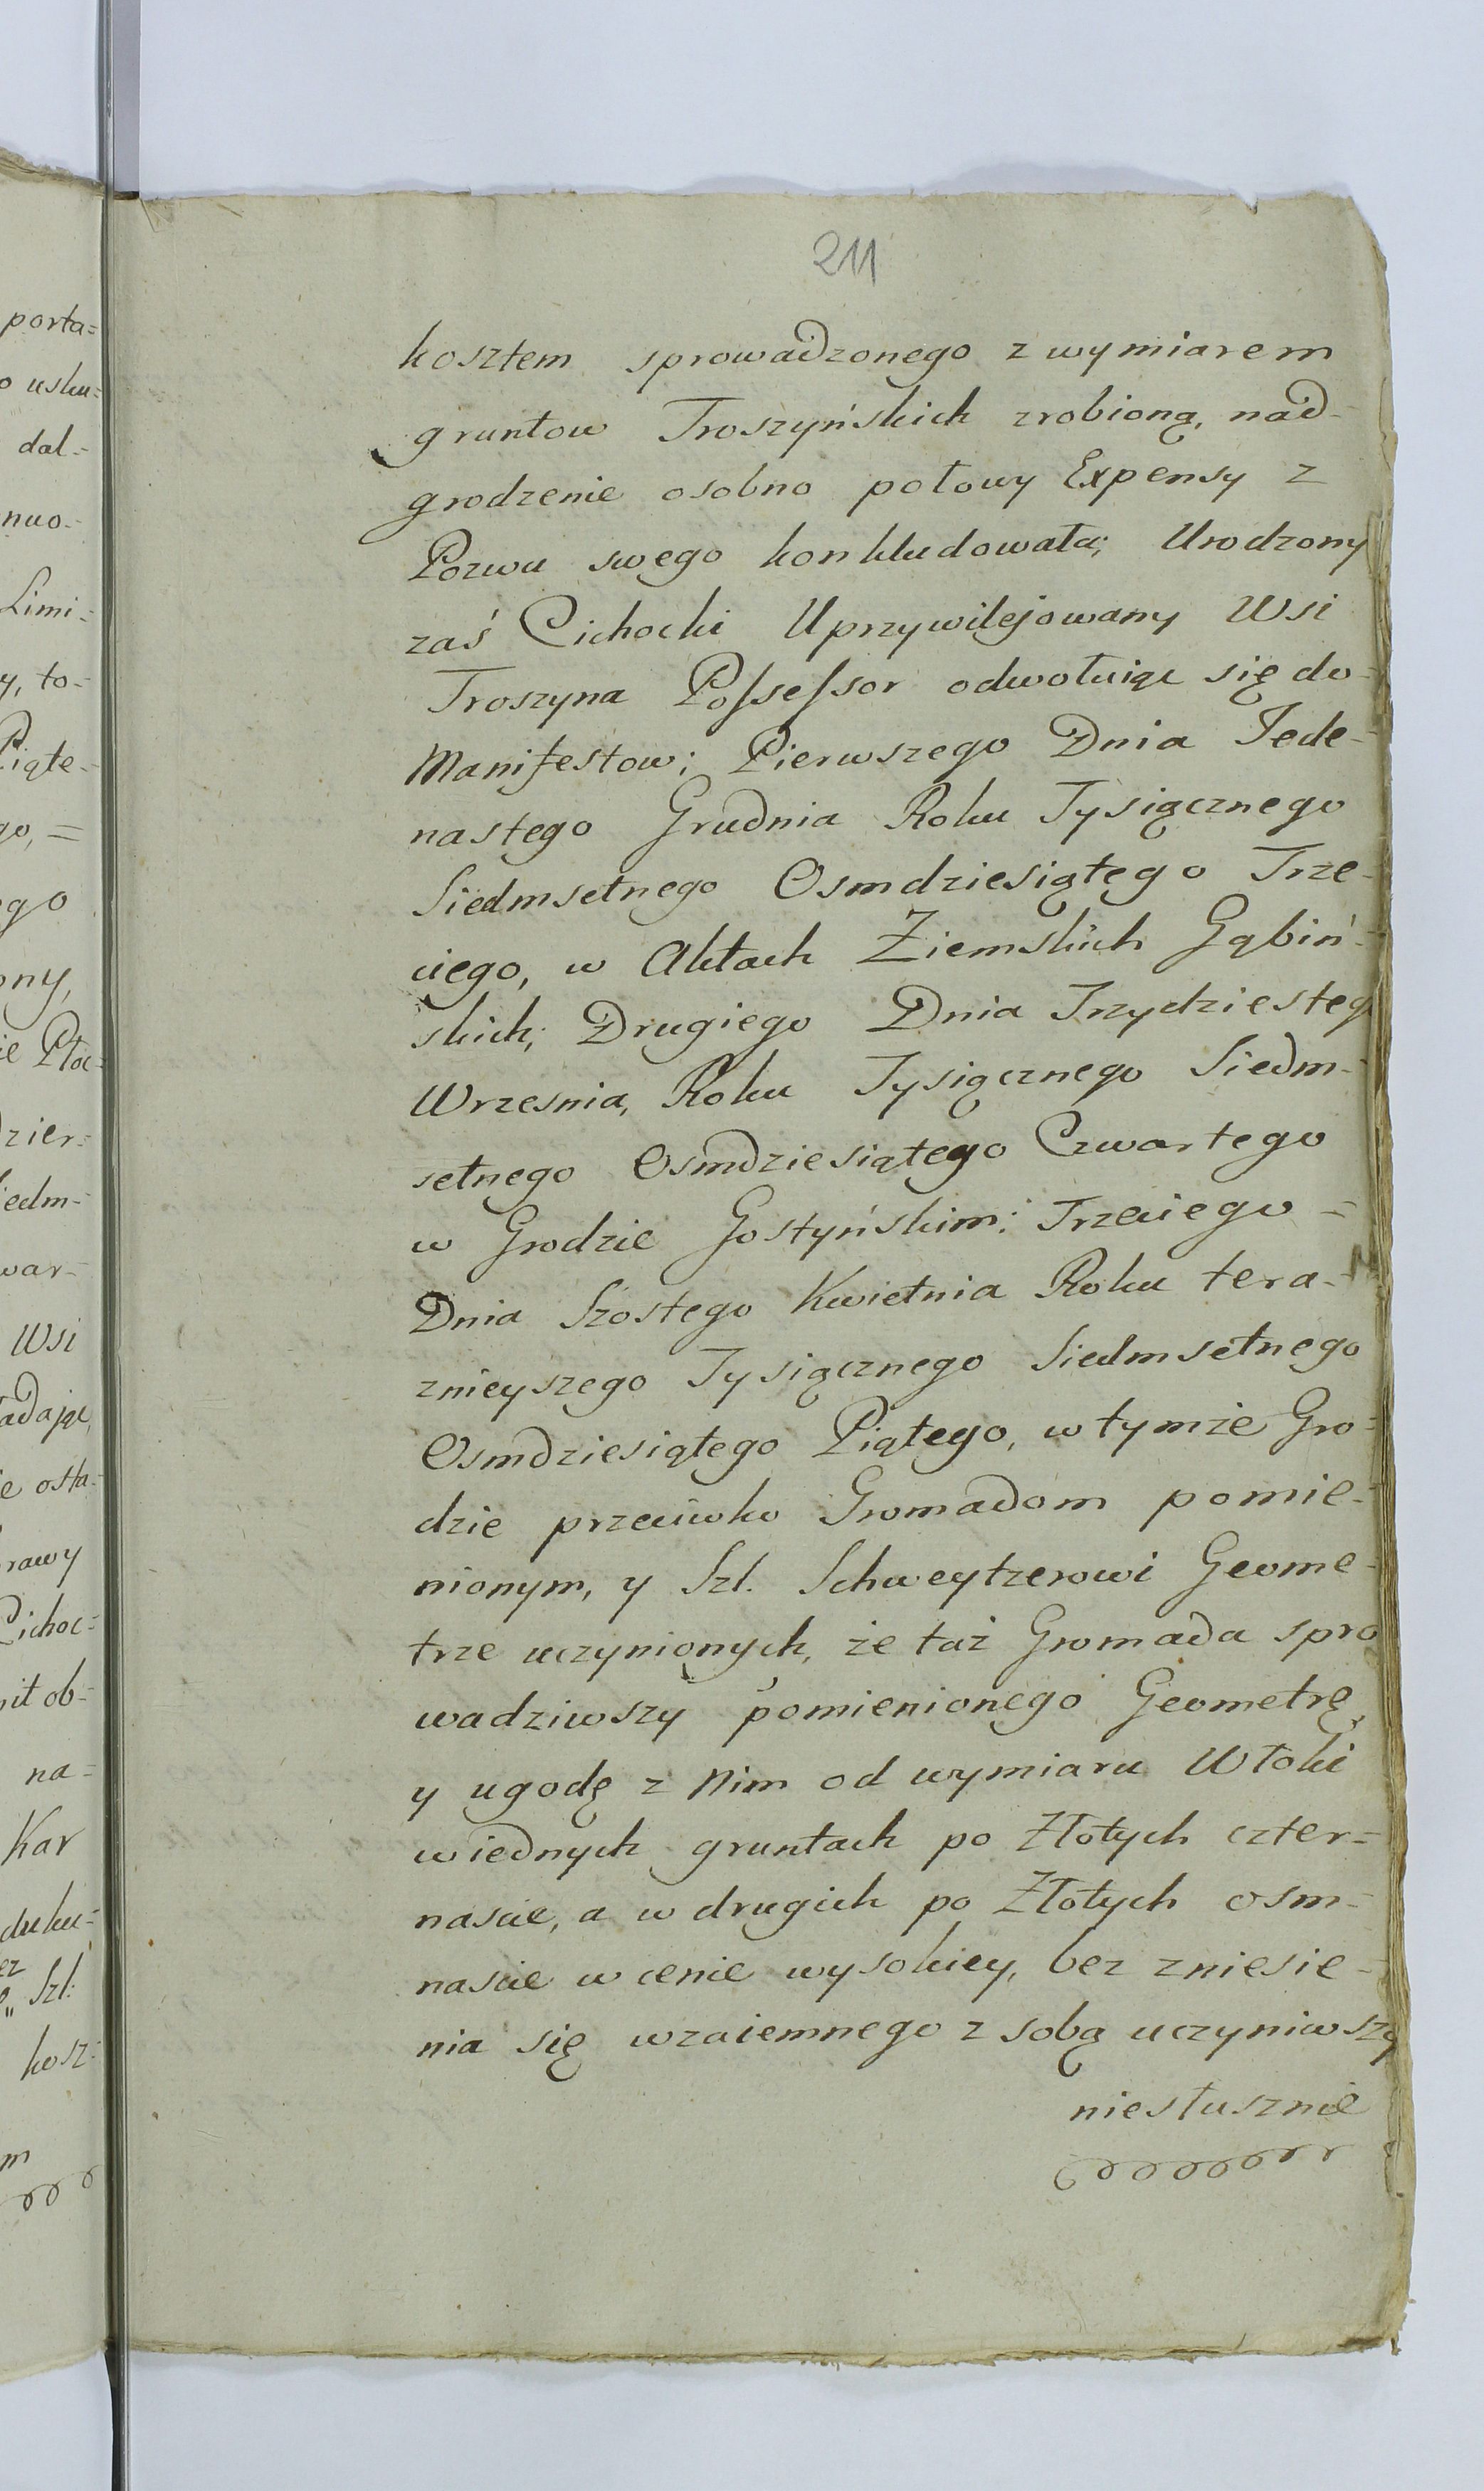 211
kosztem sprowadzonego z wymiarem
gruntow Troszyńskich zrobioną, nad-
grodzenie osobno połowy Expensy z
Pozwu swego konkludowała; Urodzony
zaś Cichocki Uprzywilejowany Wsi
Troszyna Possessor odwołuiąc się do-
Manifestow; Pierwszego Dnia Jede-
nastego Grudnia Roku Tysiącznego
Siedmsetnego Osmdziesiątego Trze-
ciego, w Aktach Ziemskich Gąbiń-
skich; Drugiego Dnia Trzydziestego
Wrzesnia, Roku Tysiącznego Siedm-
setnego Osmdziesiątego Czwartego
w Grodzie Gostyńskim; Trzeciego =
Dnia Szostego Kwietnia Roku tera-
znieyszego Tysiącznego Siedmsetnego
Osmdziesiątego Piątego, w tymże Gro-
dzie przeciwko Gromadom pomie-
nionym, y Szl. Schweytzerowi Geome-
trze uczynionych, że taż Gromada spro
wadziwszy pomienionego Geometrę,
y ugodę z Nim od wymiaru Włoki
w iednych gruntach po Złotych czter=
nascie, a w drugich po Złotych osm-
nascie w cenie wysokiey, bez zniesie-
nia się wzaiemnego z sobą uczyniwszy
niesłusznie
porta=
o usku=
dal-
nuo-
Limi-
y, to-
Piąte-
go, =
ego
ony,
ie Płoc-
dzier-
iedm-
war-
Wsi
adając,
ie osta-
rawy
Cichoc-
ił ob-
na=
Kar
duku-
Szl:
kosz-
m